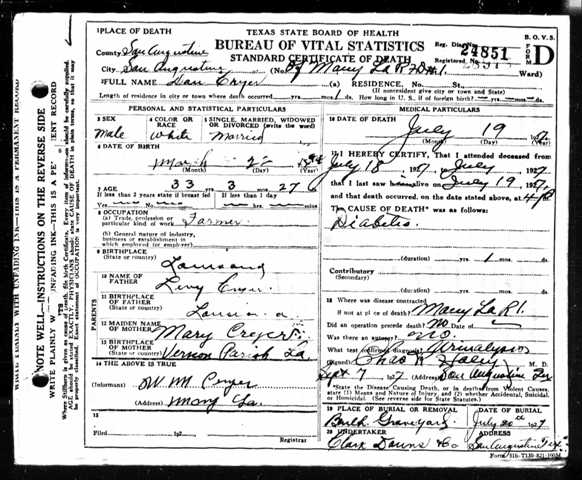 TEXAS STATE BOARD OF HEALTH
BUREAU OF VITAL STATISTICS
STANDARD CERTIFICATE OF DEATH
B. O. V. S.
FORM D
Reg. Dis. No. 24851
Registered No.
1 PLACE OF DEATH
County San Augustine
City San Augustine (No. Of Many La R 1. Ward)
2 FULL NAME Dan Cryer (a) RESIDENCE. No. St.
(If nonresident give city or town and State)
Length of residence in city or town where death occurred yrs. mos. ds. How long in U. S., if of foreign birth? yrs. mos. ds.
PERSONAL AND STATISTICAL PARTICULARS
3 SEX
Male
4 COLOR OR RACE
White
5 SINGLE, MARRIED, WIDOWED OR DIVORCED (write the word)
Married
6 DATE OF BIRTH
March 22
(Month) (Day) (Year)
7 AGE
33 3 27
If less than 2 years state if breast fed
If less than 1 day
8 OCCUPATION
(a) Trade, profession or particular kind of work Farmer
(b) General nature of industry, business or establishment in which employed (or employer)
9 BIRTHPLACE
(State or country) Louisiana
PARENTS
10 NAME OF FATHER Levy Cryer
11 BIRTHPLACE OF FATHER
(State or country) Louisiana
12 MAIDEN NAME OF MOTHER Mary Cryer
13 BIRTHPLACE OF MOTHER
(State or country) Vernon Parish La
14 THE ABOVE IS TRUE
(Informant) W M Cryer
(Address) Many La.
15
Filed 192
Registrar
MEDICAL PARTICULARS
16 DATE OF DEATH
July 19 1927
(Month) (Day) (Year)
17 I HEREBY CERTIFY, That I attended deceased from
July 18 1927, July 1927
that I last saw h alive on July 19 1927.
and that death occurred, on the date stated above, at 4 P
The CAUSE OF DEATH* was as follows:
Diabetis
(duration) 1 yrs. mos. ds.
Contributory
(Secondary)
(duration) yrs. mos. ds.
18 Where was disease contracted
if not at place of death? Many La R 1.
Did an operation precede death? No. Date of
Was there an autopsy? no.
What test confirmed diagnosis? Urinalysis
(Signed) Chas H Haley M. D.
Sept 7 1927 San Augustine Tex
*State the Disease Causing Death, or in deaths from Violent Causes, state (1) Means and Nature of Injury, and (2) whether Accidental, Suicidal or Homicidal. (See reverse side for State Statutes.)
19 PLACE OF BURIAL OR REMOVAL
Graveyard
DATE OF BURIAL
July 20th 1927
20 UNDERTAKER
Clark Downs & Co
ADDRESS
San Augustine Tex
NOTE WELL—INSTRUCTIONS ON THE REVERSE SIDE